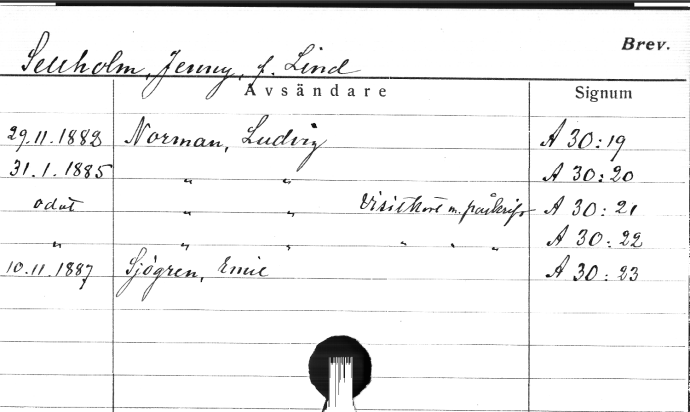 Brev.
Sellholm, Jenny, f. Lind
Avsändare Signum
29.11.1882 Norman, Ludvig A 30:19
31.1.1885 " " A 30:20
odat " " Visitkort m. påskrift A 30:21
" " " " " " A 30:22
10.11.1887 Sjögren, Emil A 30:23